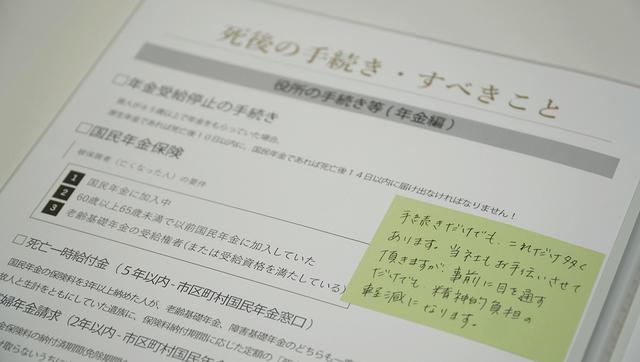 死後の手続き・すべきこと
役所の手続き等(年金編)
□年金受給停止の手続き
故人が65歳以上で年金をもらっていた場合、
厚生年金であれば死亡後10日以内に、国民年金であれば死亡後14日以内に届け出なければなりません!
□国民年金保険
被保険者(亡くなった人)の要件
1 国民年金に加入中
2 60歳以上65歳未満で以前国民年金に加入していた
3 老齢基礎年金の受給権者(または受給資格を満たしている)
□死亡一時給付金(5年以内-市区町村国民年金窓口)
国民年金の保険料を3年以上納めた人が、老齢基礎年金、障害基礎年金のどちらも一
故人と生計をともにしていた遺族に、保険料納付期間に応じた定額の「死
婦年金請求(2年以内-市区町村国民年
金保険料の納付済期間免除期間
取らないうちに
手続きだけでも、これだけ多く
あります。当社もお手伝いさせて
頂きますが、事前に目を通す
だけでも、精神的負担の
軽減になります。